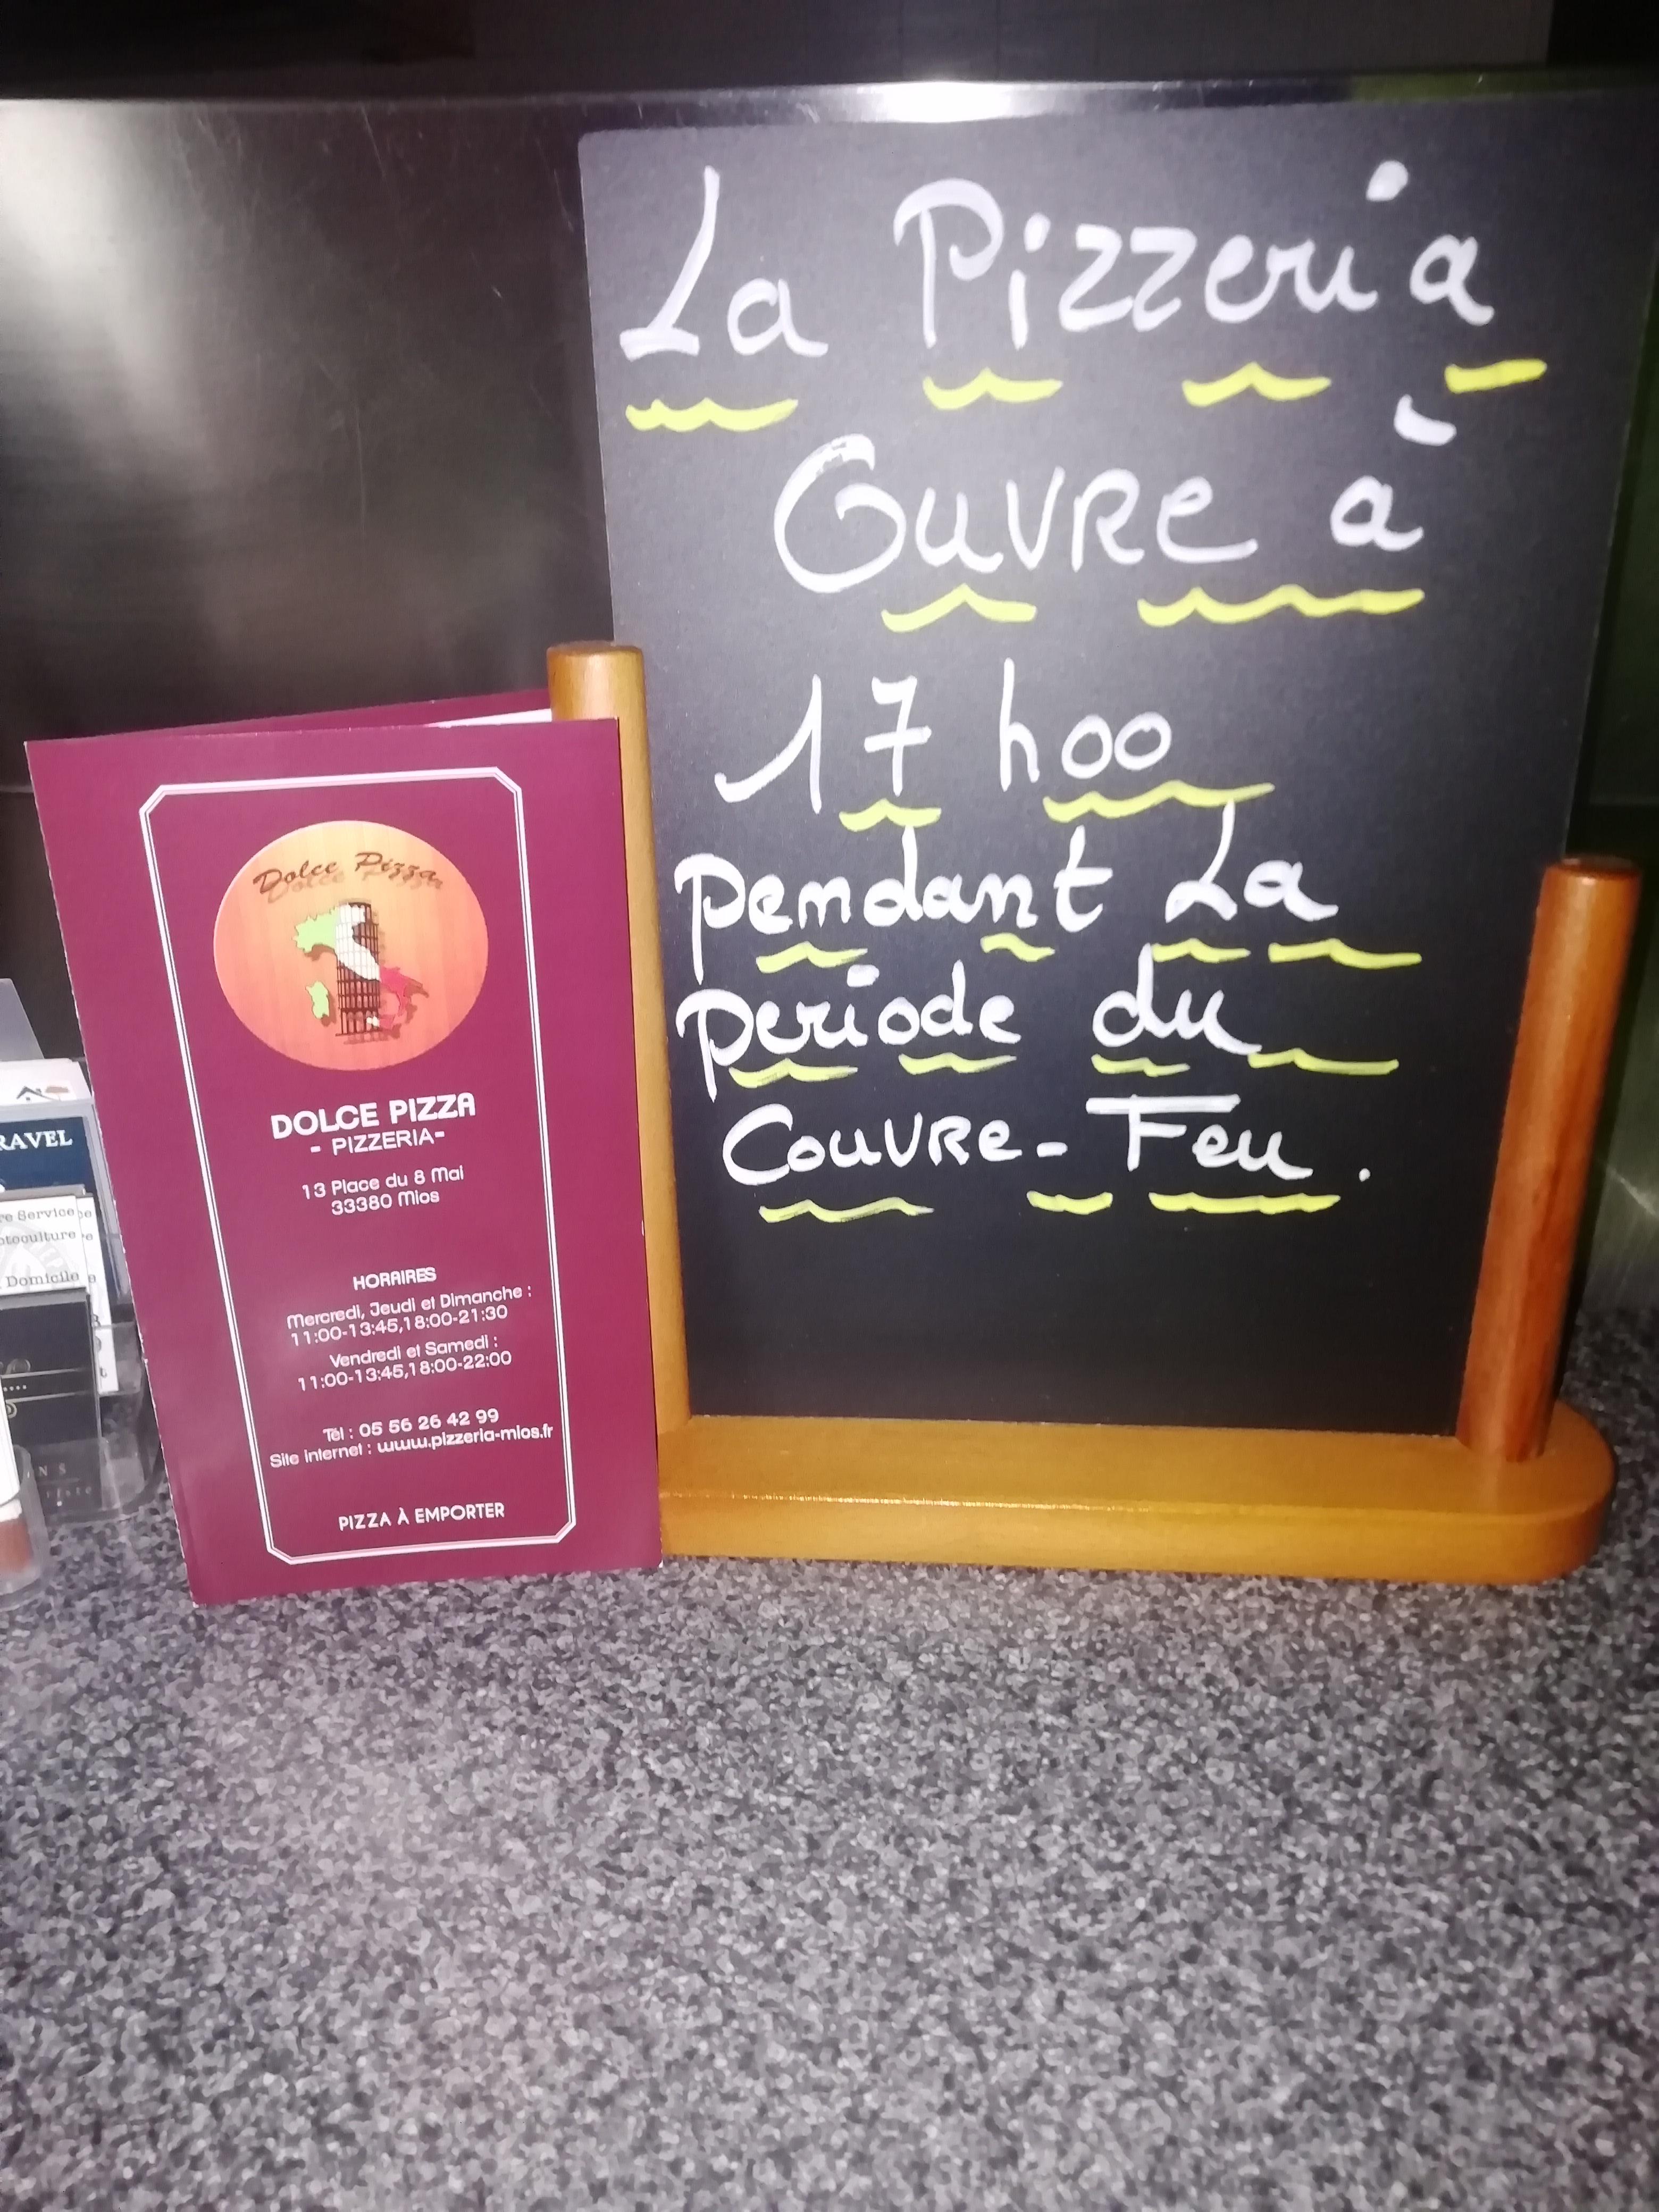 La Pizzeria
Ouvre à
17 hoo
pendant La
periode du
Couvre-Feu.
Dolce Pizza
DOLCE PIZZA
- PIZZERIA-
13 Place du 8 Mai
33380 Mios
HORAIRES
Mercredi, Jeudi et Dimanche :
11:00-13:45,18:00-21:30
Vendredi et Samedi :
11:00-13:45,18:00-22:00
Tèl : 05 56 26 42 99
Site internet : www.pizzeria-mios.fr
PIZZA À EMPORTER
RAVEL
re Service
otoculture
Domicile